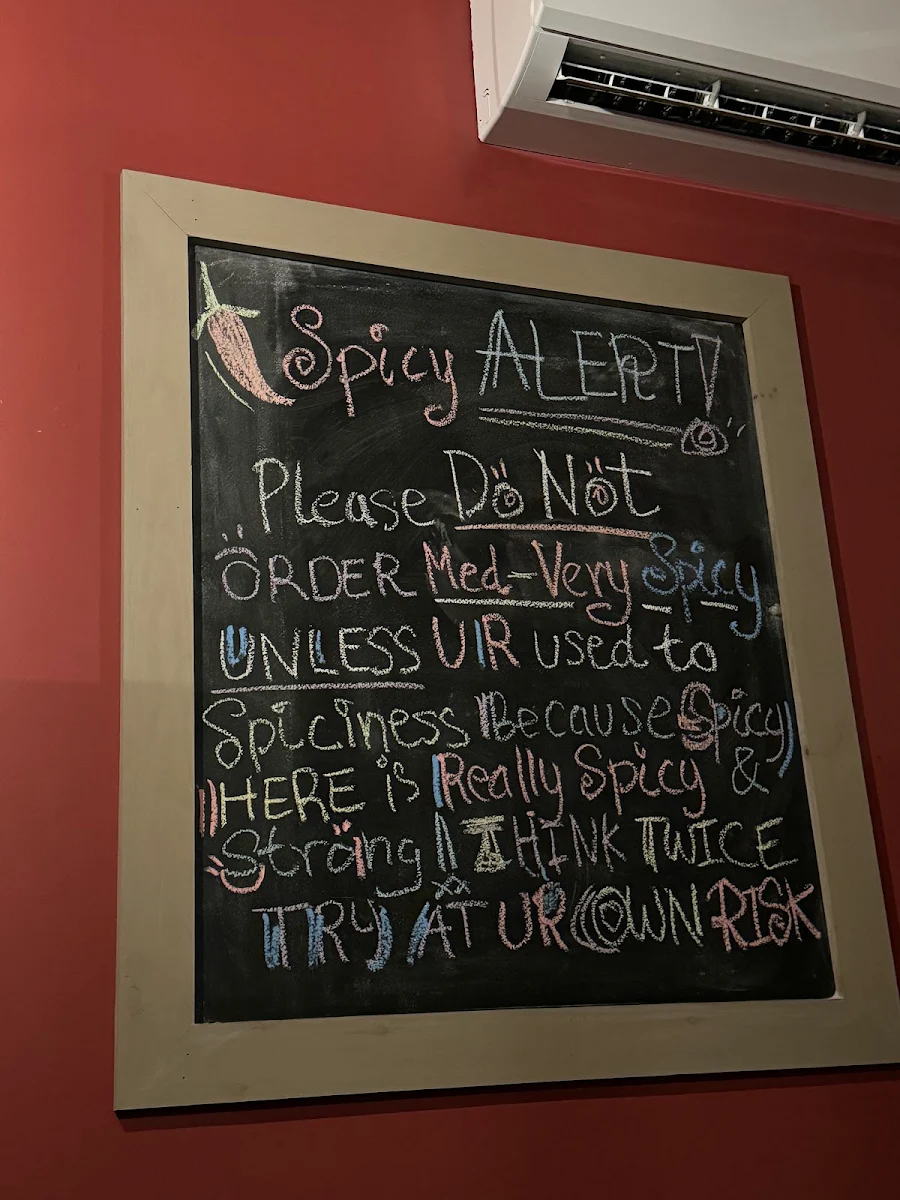 Spicy ALERT!
Please Do Not
ORDER Med-Very Spicy
UNLESS U R used to
Spiciness Because Spicy
HERE is Really Spicy &
Strong! THINK TWICE
TRY AT UR OWN RISK